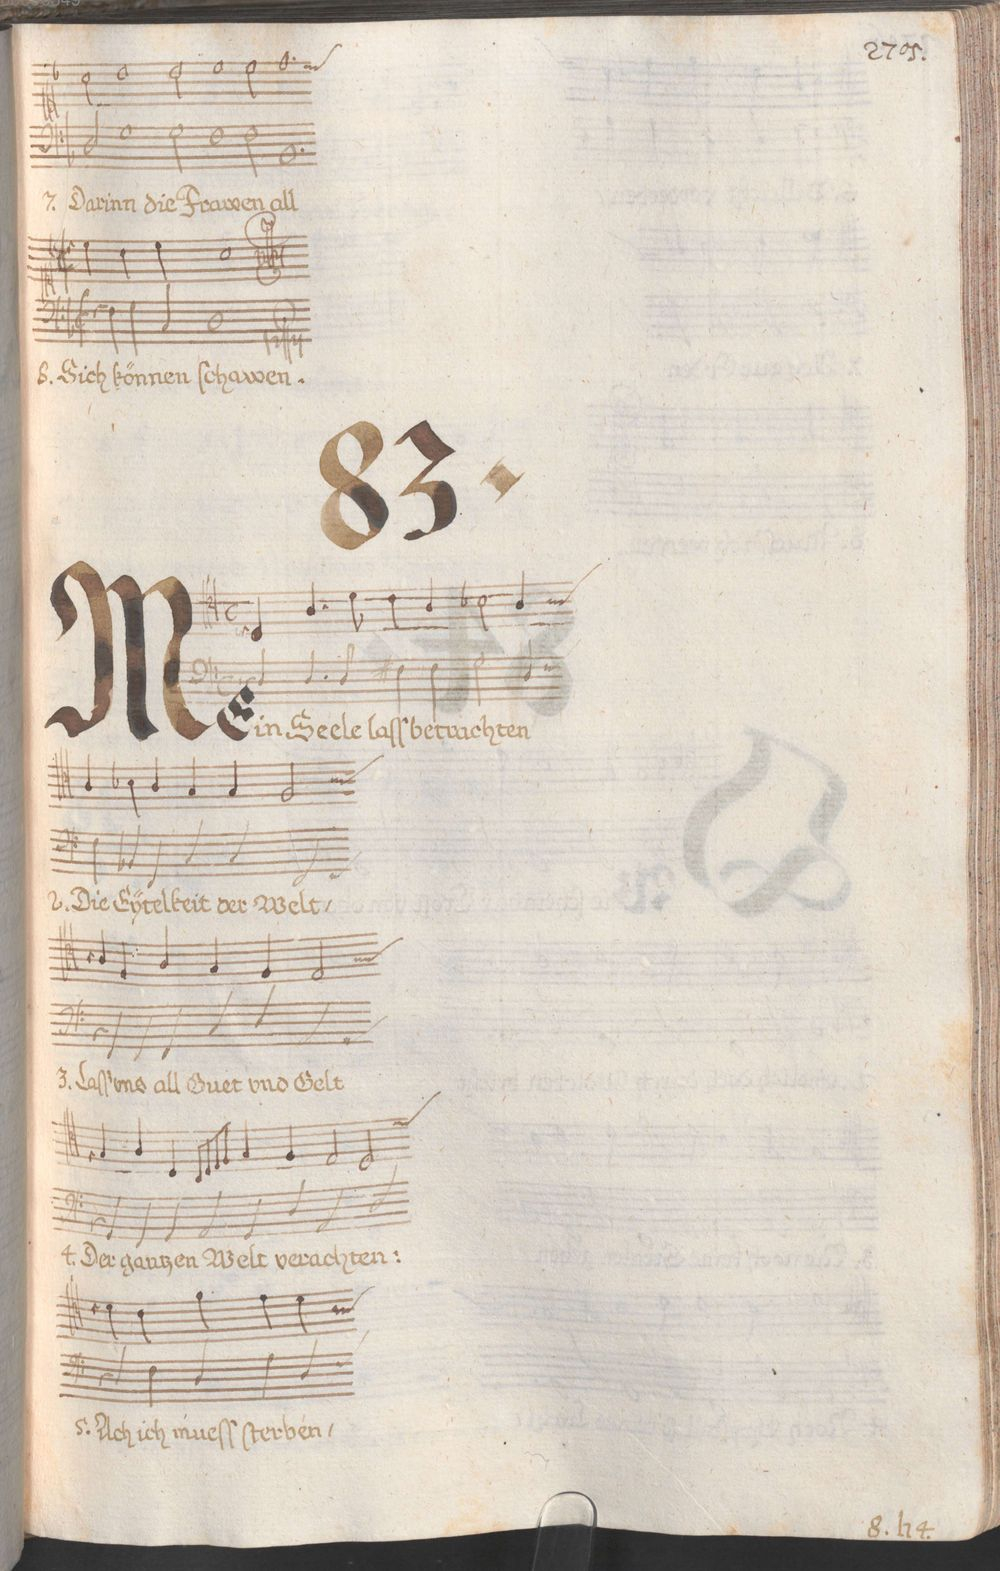 275.
7. Darinn die Frawen all
8. Sich können schawen.
83.
MEin Seele lass betrachten
2. Die Eÿtelkeit der Welt/
3. Lass vns all Guet vnd Gelt
4. Der gantzen Welt verachten:
5. Ach ich muess sterben/
8. h4.